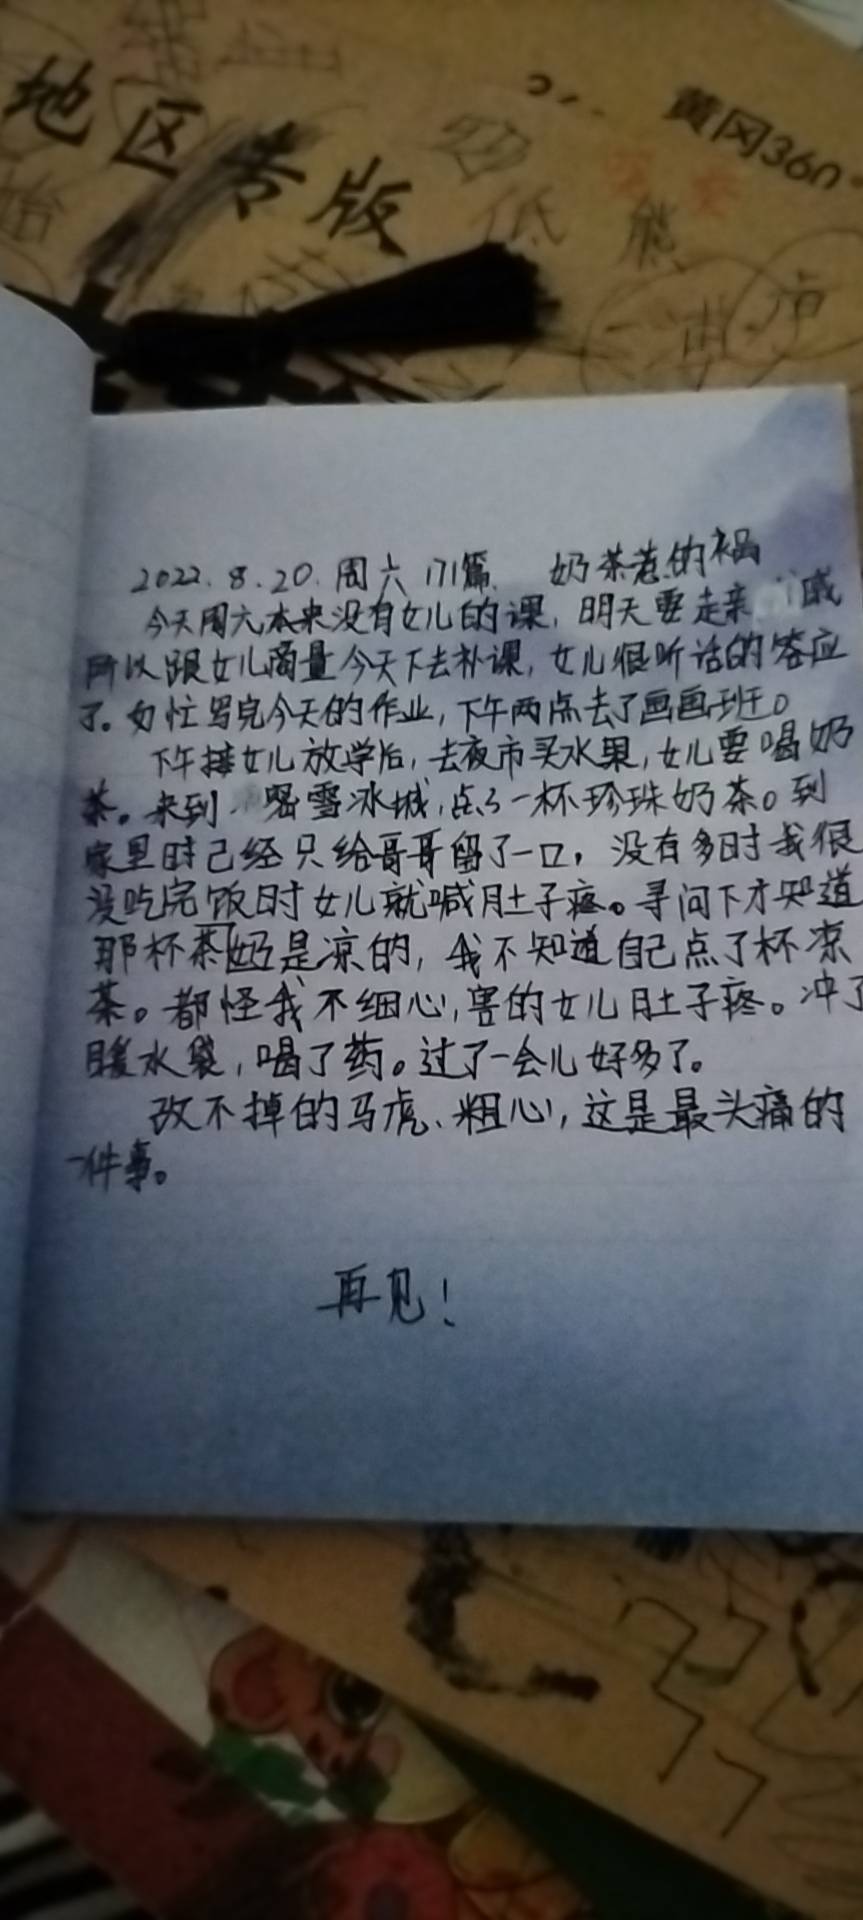 地区专版
黄冈360
低
能
2022.8.20.周六 171篇. 奶茶惹的祸
今天周六本来没有女儿的课,明天要走亲戚
所以跟女儿商量今天下去补课,女儿很听话的答应
了。匆忙写完今天的作业,下午两点去了画画班。
下午接女儿放学后,去夜市买水果,女儿要喝奶
茶。来到 密雪冰城,点了一杯珍珠奶茶。到
家里时己经只给哥哥留了一口,没有多时我很
没吃完饭时女儿就喊肚子疼。寻问下才知道
那杯茶奶是凉的,我不知道自己点了杯凉
茶。都怪我不细心,害的女儿肚子疼。冲了
暖水袋,喝了药。过了一会儿好多了。
改不掉的马虎、粗心,这是最头痛的
一件事。
再见!